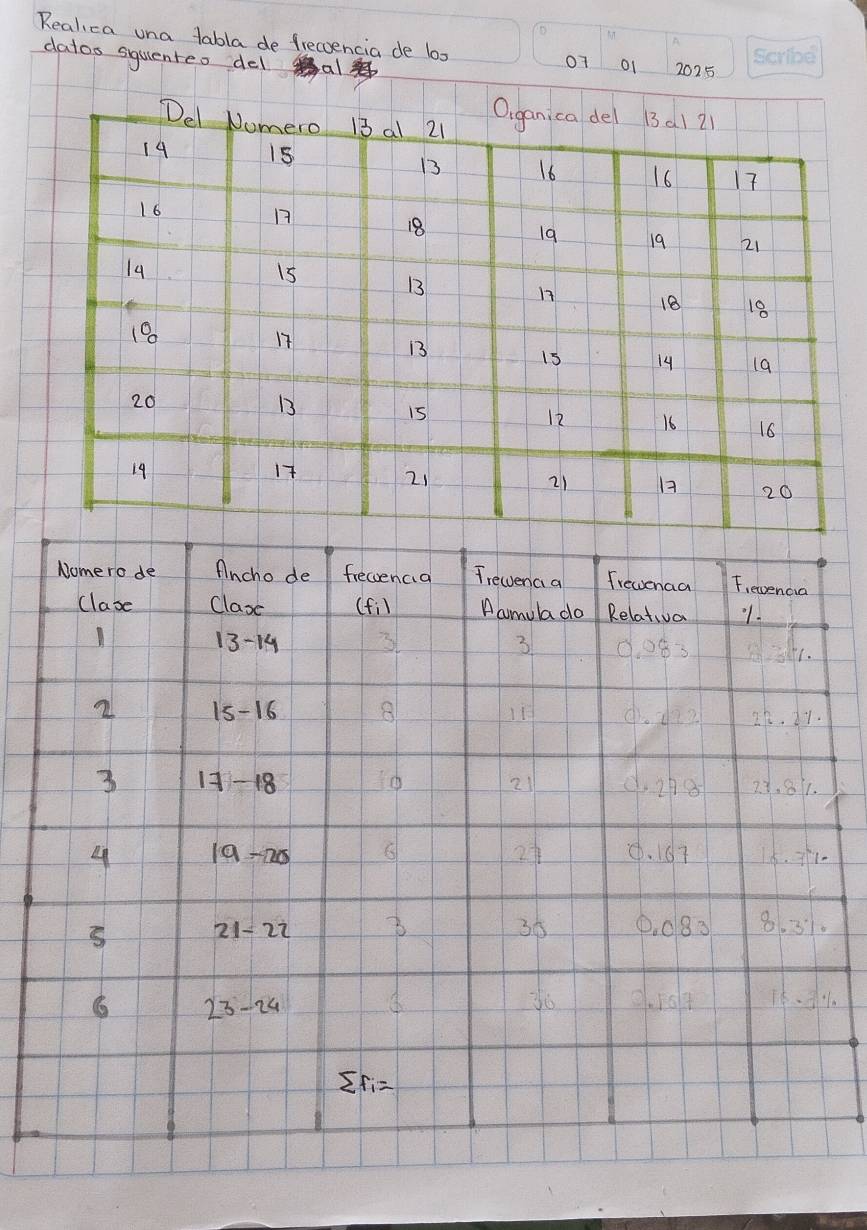 Realica una tabla de frecuencia de los
datos siguientes del al
07 01 2025
Scribe
Del Numero 13 al 21
Organica del 13 al 21
14 15 13 16 16 17
16 17 18 19 19 21
14 15 13 17 18 18
18 17 13 15 14 19
20 13 15 12 16 16
19 17 21 21 17 20
Numero de Clase Ancho de Clase frecuencia (fi) Frecuencia Acumulado Frecuencia Relativa Frecuencia %
1 13-14 3 3 0.083 8.3%.
2 15-16 8 11 0.222 22.2%.
3 17-18 10 21 0.278 27.8%.
4 19-20 6 27 0.167 16.7%.
5 21-22 3 30 0.083 8.3%.
6 23-24 6 36 0.167 16.7%.
Σfi=